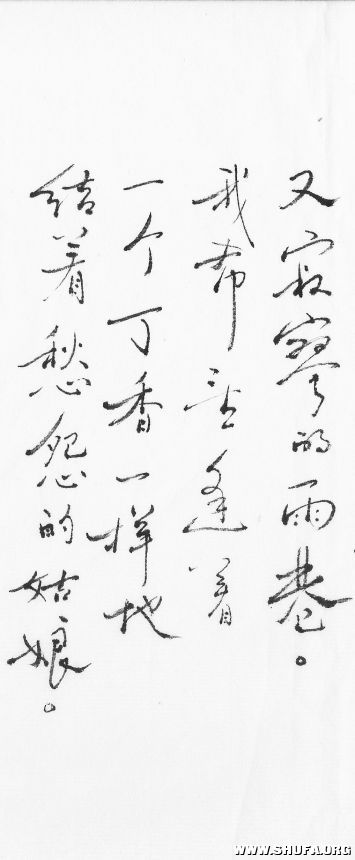 又寂寥的雨巷。
我希望逢着
一个丁香一样地
结着愁怨的姑娘。
WWW.SHUFA.ORG